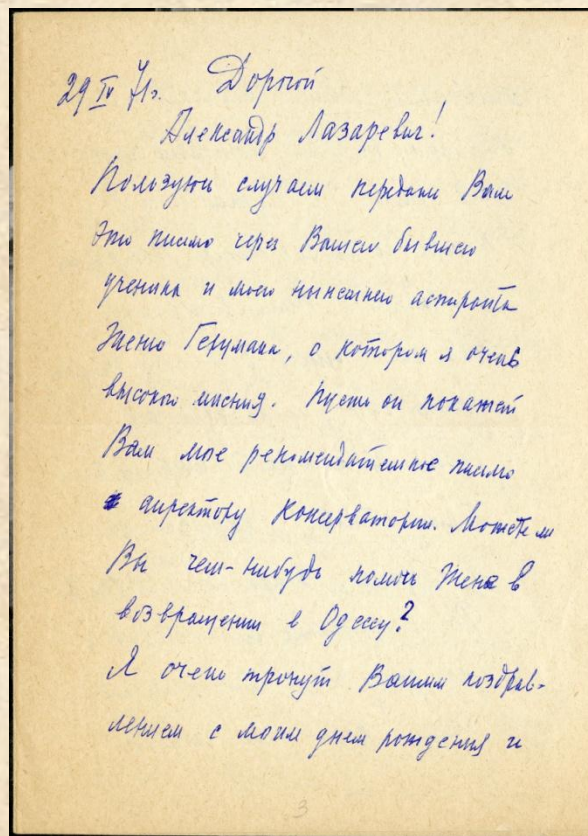 29 IV 71г. Дорогой
Александр Лазаревич!
Пользуюсь случаем передать Вам
это письмо через Вашего бывшего
ученика и моего нынешнего аспиранта
Женю Герцмана, о котором я очень
высокого мнения. Пусть он покажет
Вам мое рекомендательное письмо
директору Консерватории. Можете ли
Вы чем-нибудь помочь Жене в
возвращении в Одессу?
Я очень тронут Вашим поздрав-
лением с моим днем рождения и
3